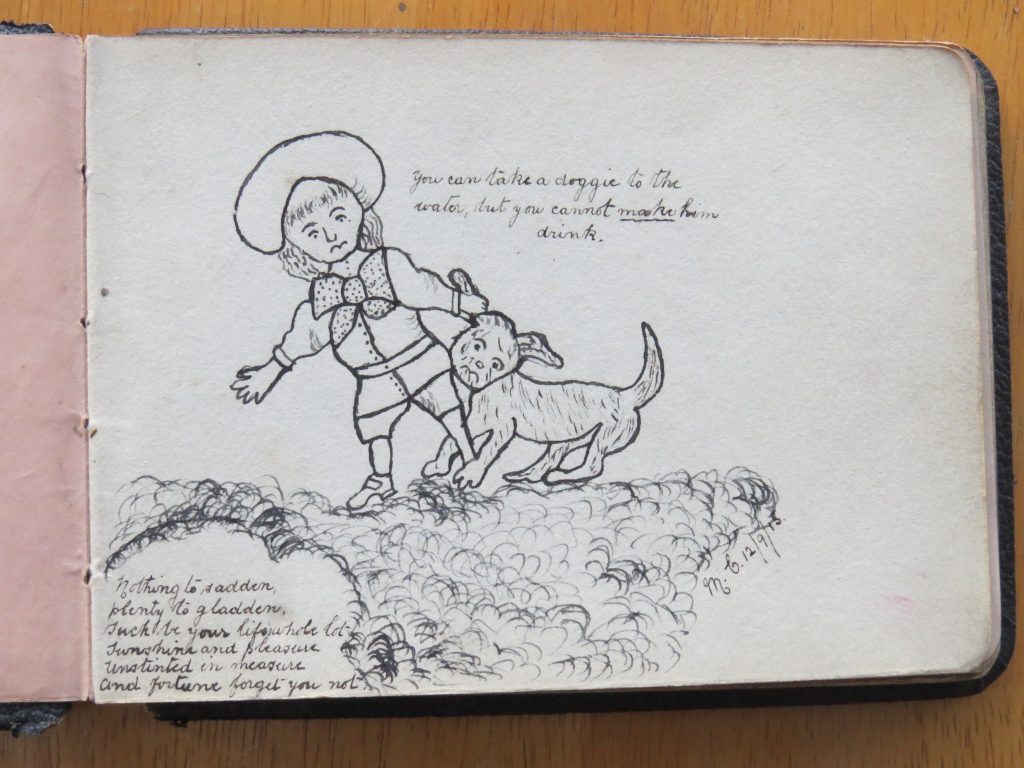 You can take a doggie to the
water, but you cannot make him
drink.
Nothing to sadden,
plenty to gladden,
Such be your life's whole lot.
Sunshine and pleasure
unstinted in measure
and fortune forget you not.
M. C. 12/9/15.